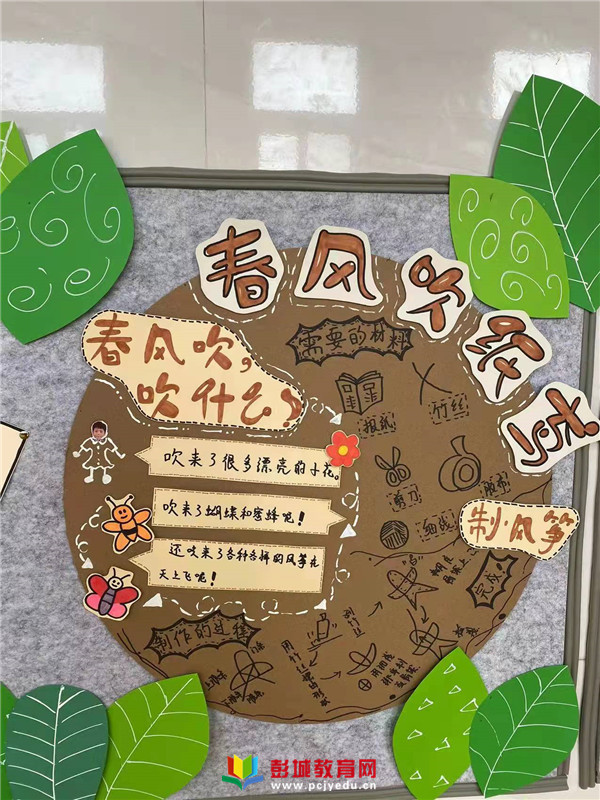 春风吹纸鸢
春风吹,
吹什么?
吹来了很多漂亮的小花。
吹来了蝴蝶和蜜蜂呢!
还吹来了各种各样的风筝在
天上飞呢!
需要的材料
报纸
竹丝
剪刀
胶带
细线
制风筝
制作的过程
完成!
彭城教育网
www.pcjyedu.cn